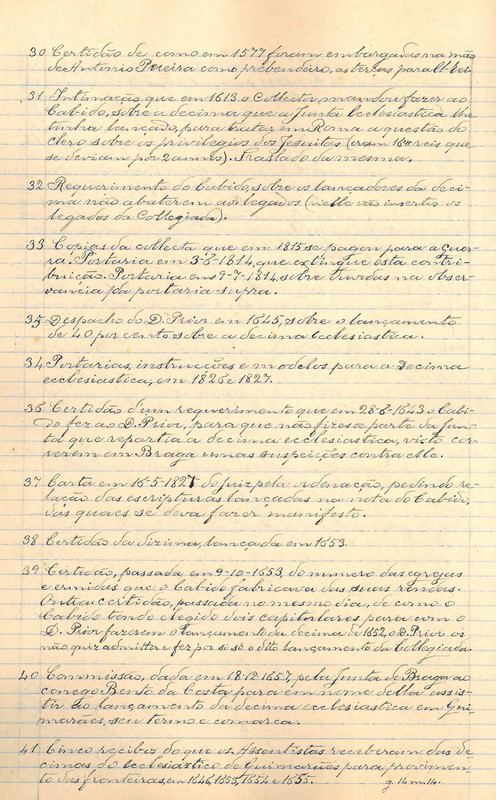 30 Certidão de como em 1577 foram embargadas na mão
de Antonio Pereira como prebendeiro, as terças para
31 Intimação que em 1613 o Collector mandou fazer ao
Cabido, sobre a decima que a Junta Ecclesiastica lhe
tinha lançado, para tratar em Roma a questão do
clero sobre os privilegios dos Jesuitas (eram reis que
se deviam por 2 annos). Traslado da mesma.
32 Requerimento do Cabido, sobre os lançadores da deci-
ma não abaterem aos legados (n'elle vão insertos os
legados da Collegiada).
33 Copias da collecta que em 1815 se pagou para a Guer-
ra. Portaria em 1814, que extingue esta contri-
buição. Portaria em 9-7-1814, sobre duvidas na obser-
vancia da portaria supra.
35 Despacho do D. Prior em 1645, sobre o lançamento
de 40 por cento sobre a decima ecclesiastica.
34 Portarias, instrucções e modelos para a Decima
ecclesiastica, em 1826 e 1827.
36 Certidão d'um requerimento que em 1643 o Cabi-
do fez ao D. Prior, para que não fizesse parte da Jun-
ta que repartia a decima ecclesiastica, visto cor-
rerem em Braga umas suspeições contra elle.
37 Carta em 16-5-1827 do Juiz pela ordenação, pedindo re-
lação das escripturas lançadas na nota do Cabido,
das quaes se deva fazer manifesto.
38 Certidão da dizima, lançada em 1653.
39 Certidão, passada em 9-10-1653, do numero das egrejas
e ermidas que o Cabido fabricava das suas rendas.
Outra certidão, passada no mesmo dia, de como o
Cabido tendo elegido dois capitulares para com o
D. Prior fazerem o lançamento da decima de 1652, o D. Prior os
não quiz admittir e fez por si só o dito lançamento da Collegiada.
40 Commissão, dada em 18-12-1657, pela Junta de Braga ao
conego Bento da Costa para em nome d'ella assis-
tir ao lançamento da decima ecclesiastica em Gui-
marães, seu termo e comarca.
41 Cinco recibos do que os Assentistas receberam das de-
cimas do ecclesiástico de Guimarães para provimen-
to das fronteiras, em 1646, 1653, 1654 e 1655.